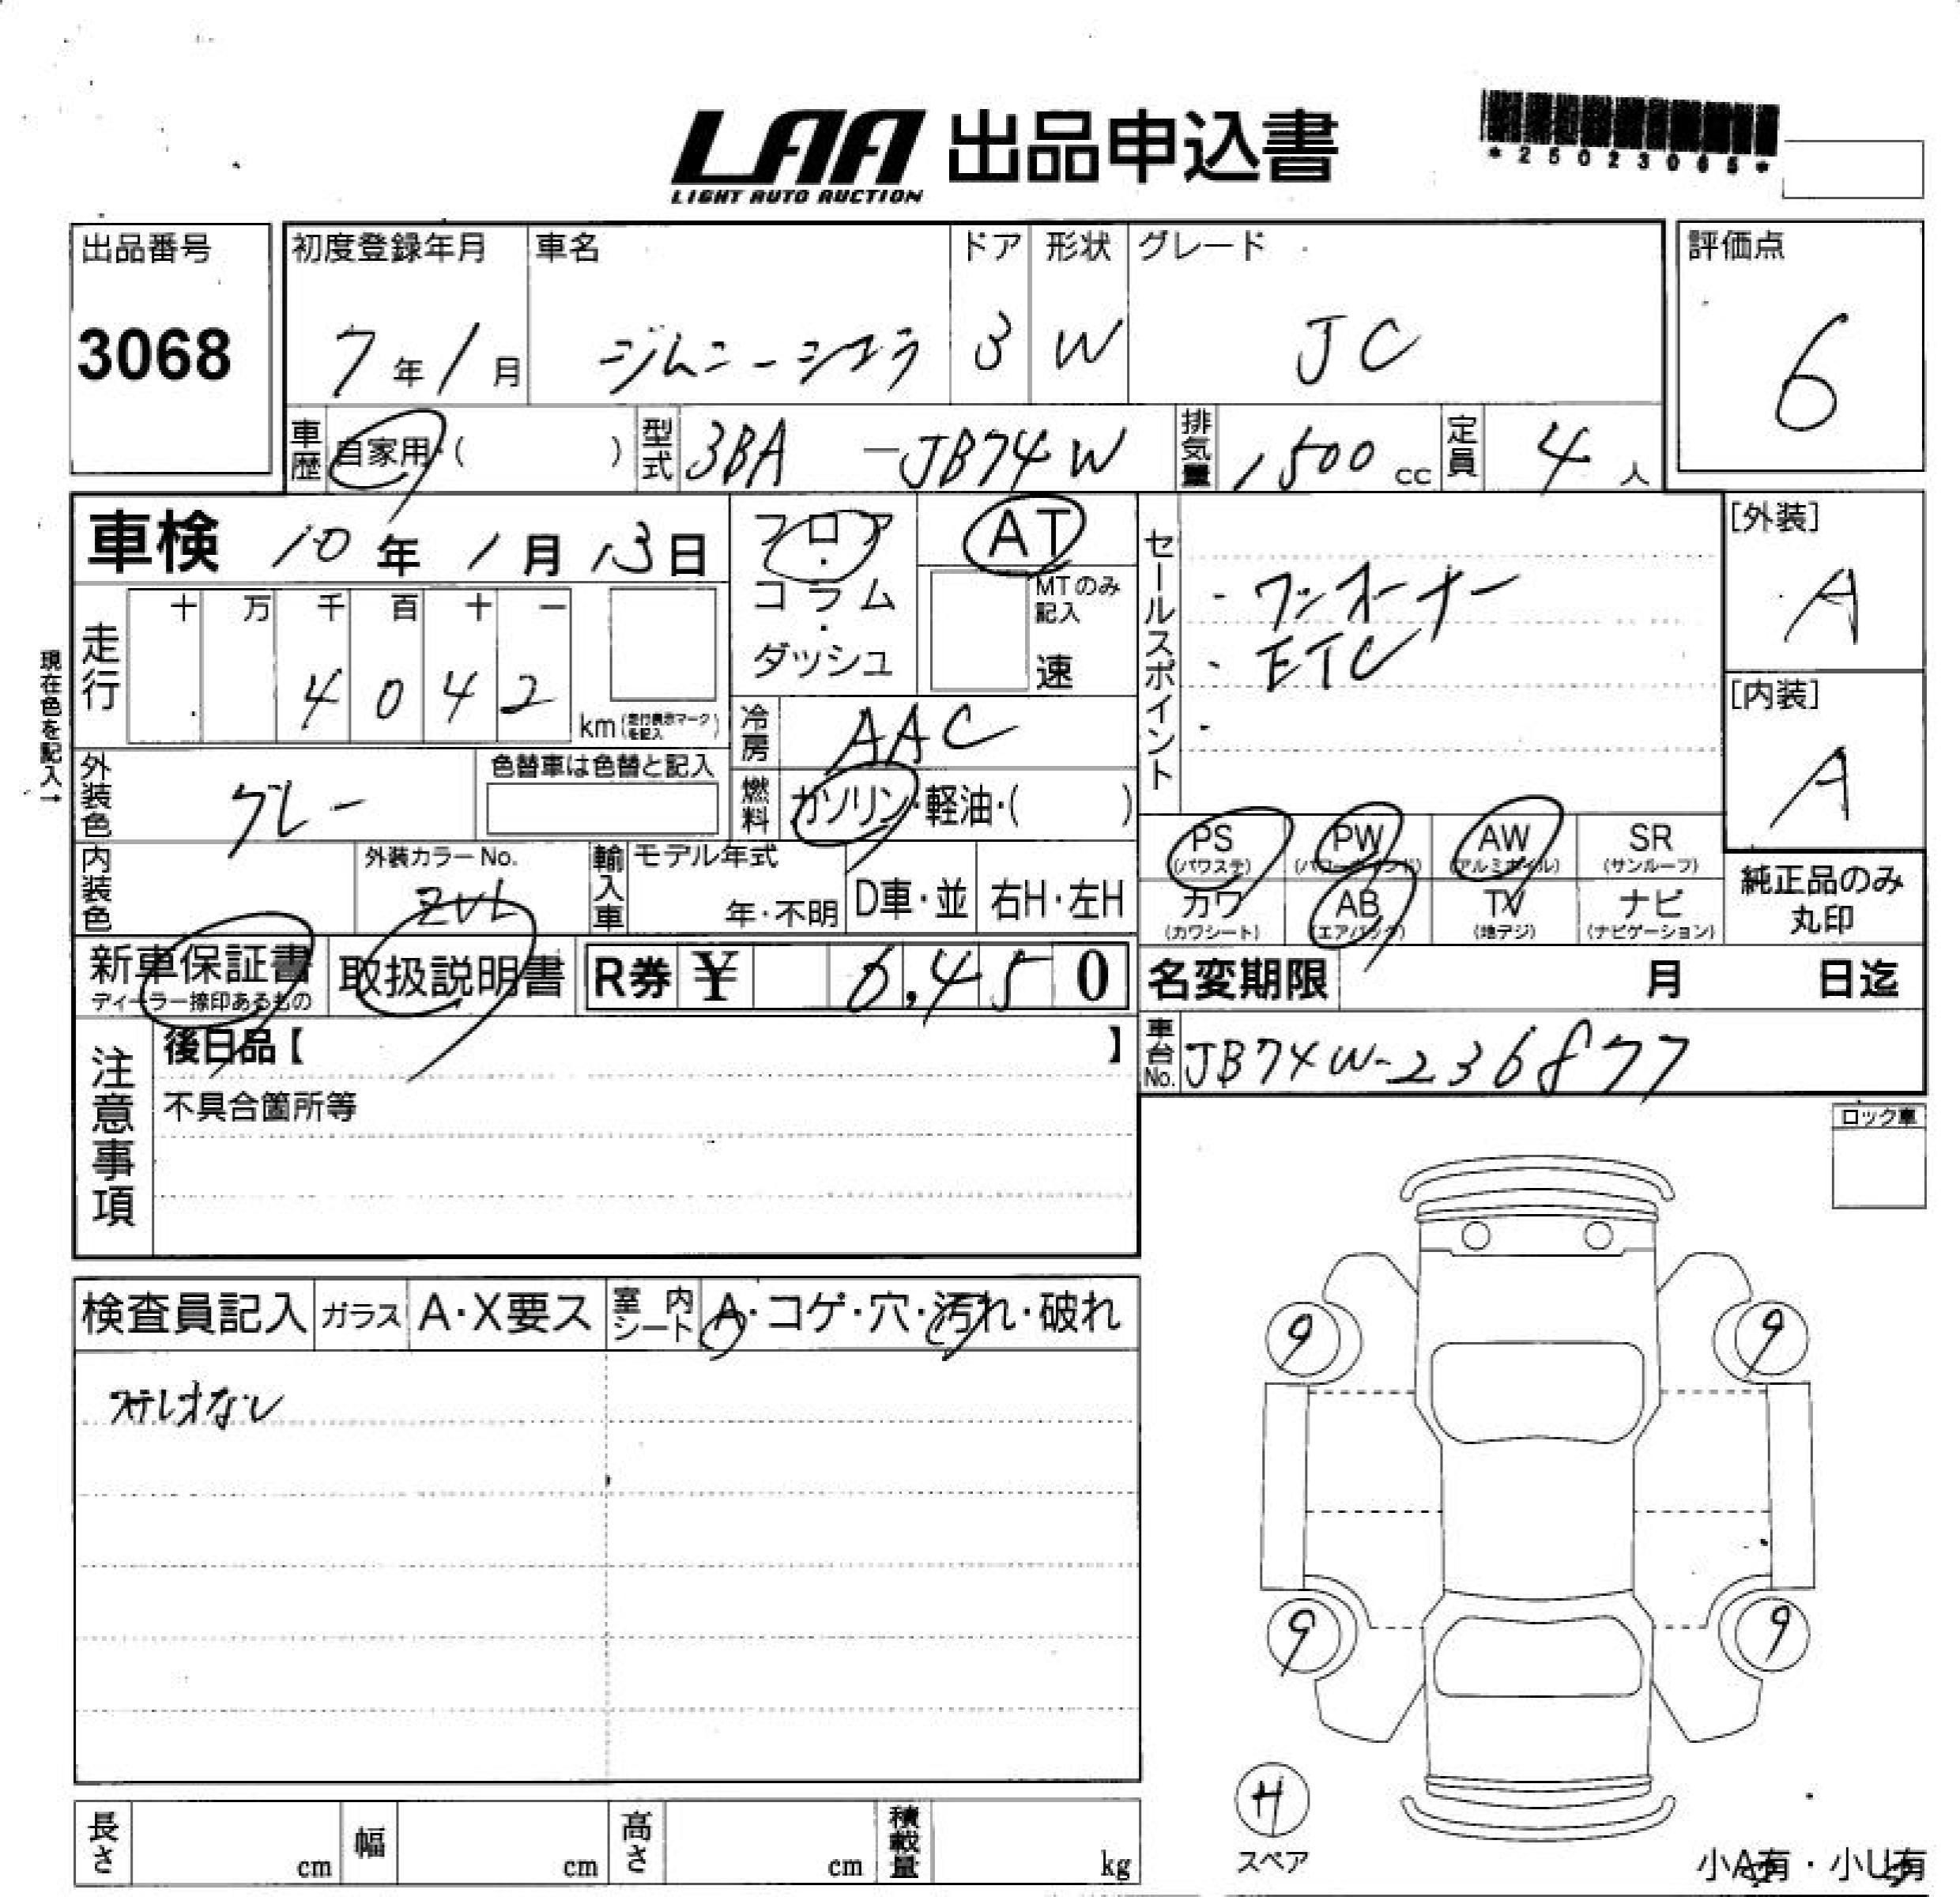 LAA 出品申込書
LIGHT AUTO AUCTION
*25023065*
出品番号
3068
初度登録年月
7年1月
車名
ジムニーシエラ
ドア
3
形状
W
グレード
JC
評価点
6
車歴
自家用・( )
型式
3BA -JB74W
排気量
1500cc
定員
4人
車検 10年1月13日
フロア・コラム・ダッシュ
AT
MTのみ記入
速
走行
十 万 千 百 十 一
4 0 4 2
km(走行表示マークを記入)
現在色を記入→
冷房
AAC
燃料
ガソリン・軽油・( )
セールスポイント
・ワンオーナー
・ETC
・
[外装]
A
[内装]
A
外装色
グレー
色替車は色替と記入
内装色
外装カラーNo.
ZVL
輸入車
モデル年式
年・不明
D車・並
右H・左H
PS
(パワステ)
PW
(パワーウインド)
AW
(アルミホイル)
SR
(サンルーフ)
カワ
(カワシート)
AB
(エアバッグ)
TV
(地デジ)
ナビ
(ナビゲーション)
純正品のみ
丸印
新車保証書
ディーラー捺印あるもの
取扱説明書
R券 ¥ 6,450
名変期限 月 日迄
車台No.
JB74W-236877
注意事項
後日品【 】
不具合箇所等
ロック車
検査員記入
ガラス
A・X要ス
室内シート
A・コゲ・穴・汚れ・破れ
9
9
9
9
H
スペア
長さ cm
幅 cm
高さ cm
積載量 kg
小A有・小U有